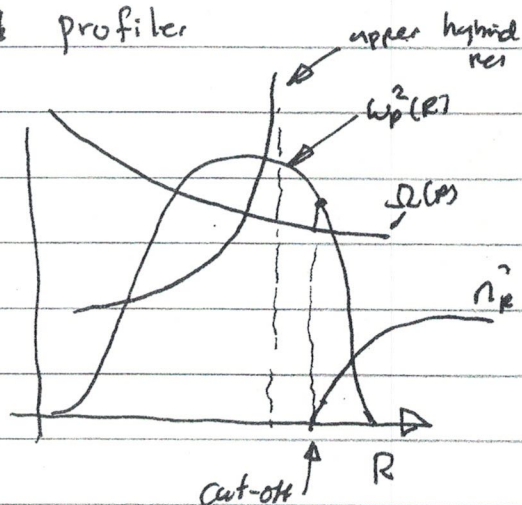 profiles
upper hybrid
res
ωp²(R)
Ω(R)
R
cut-off